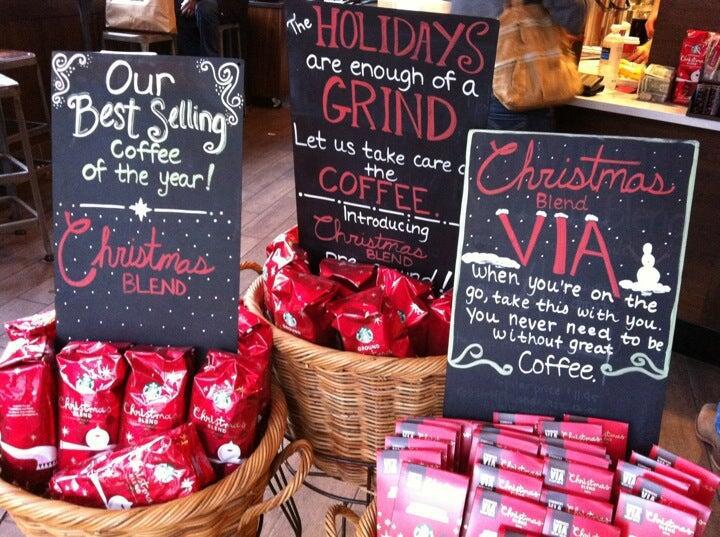 Our
Best Selling
Coffee
of the year!
Christmas
BLEND
The HOLIDAYS
are enough of a
GRIND
Let us take care
the
COFFEE.
Introducing
Christmas
BLEND
Christmas
Blend
VIA
When you're on the
go, take this with you.
You never need to be
without great
Coffee.
Christmas
BLEND
Christmas
Christmas
BLEND
Christmas
BLEND
GROUND
VIA
Christmas
VIA
Christmas
VIA
Christmas
VIA